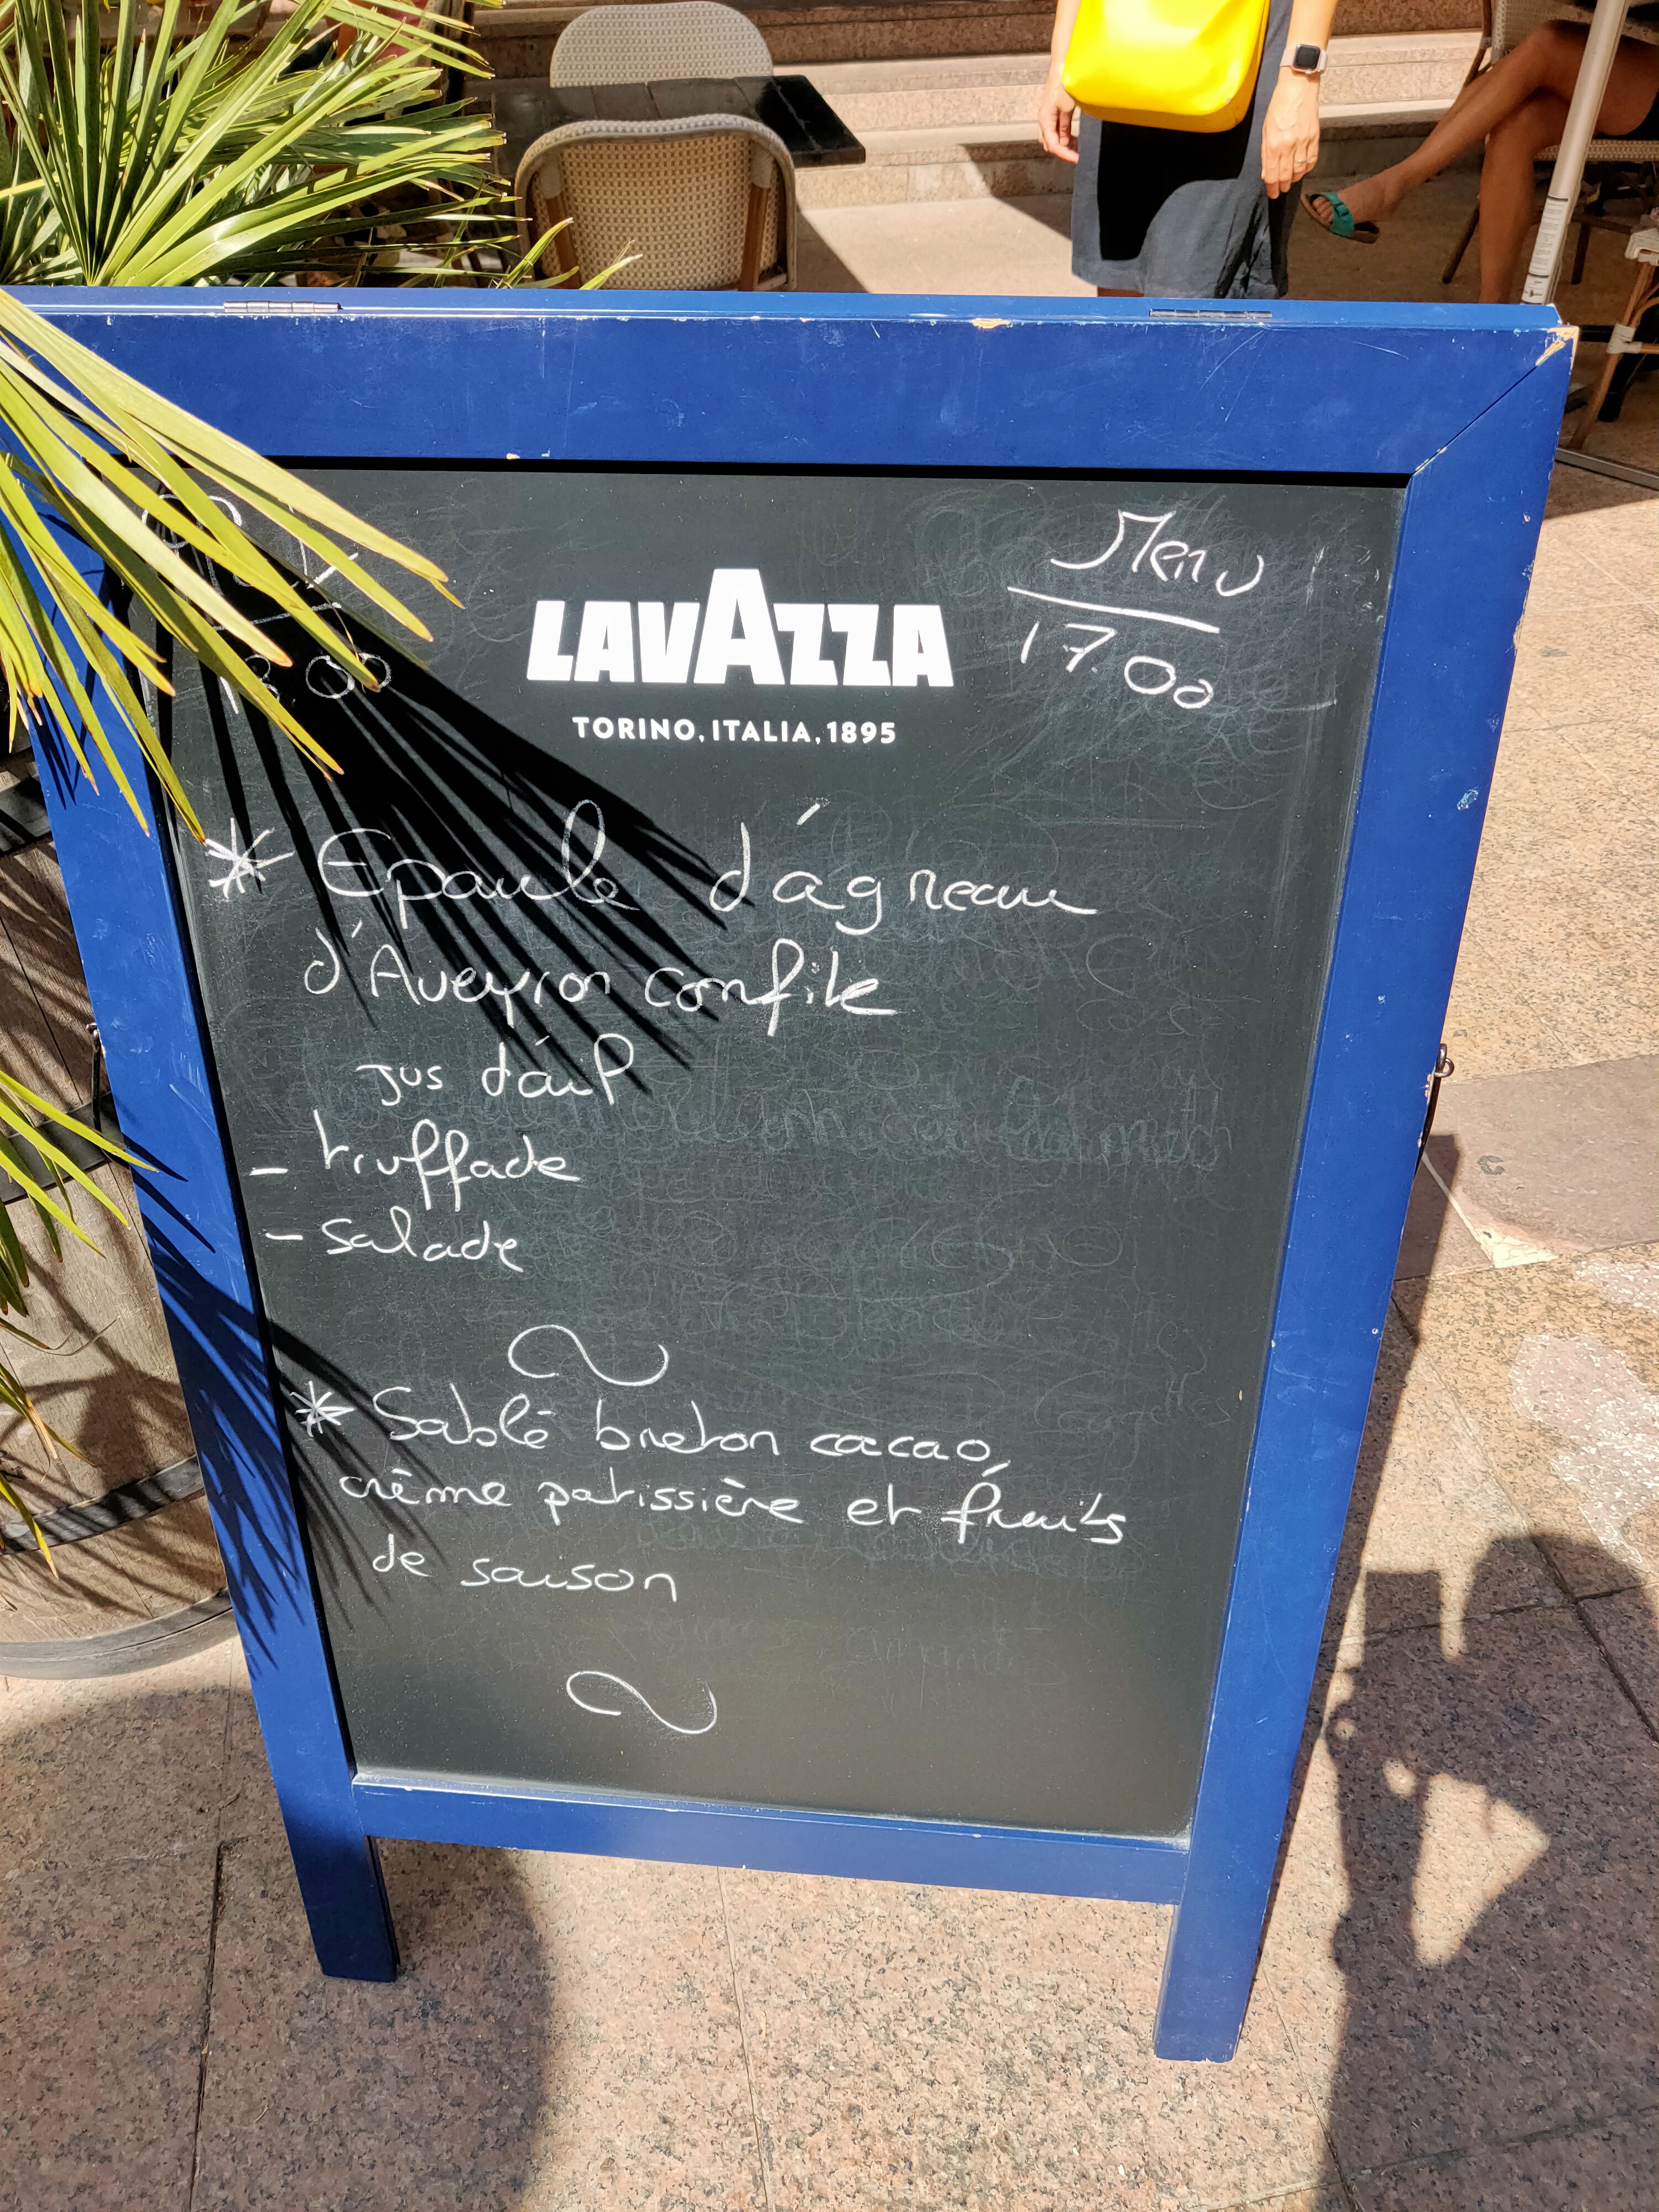 Menu
17.00
LAVAZZA
TORINO, ITALIA, 1895
* Epaule d'agneau
d'Aveyron confite
jus d'ail
- truffade
- salade
* Sablé breton cacao,
crème patissière et fruits
de saison